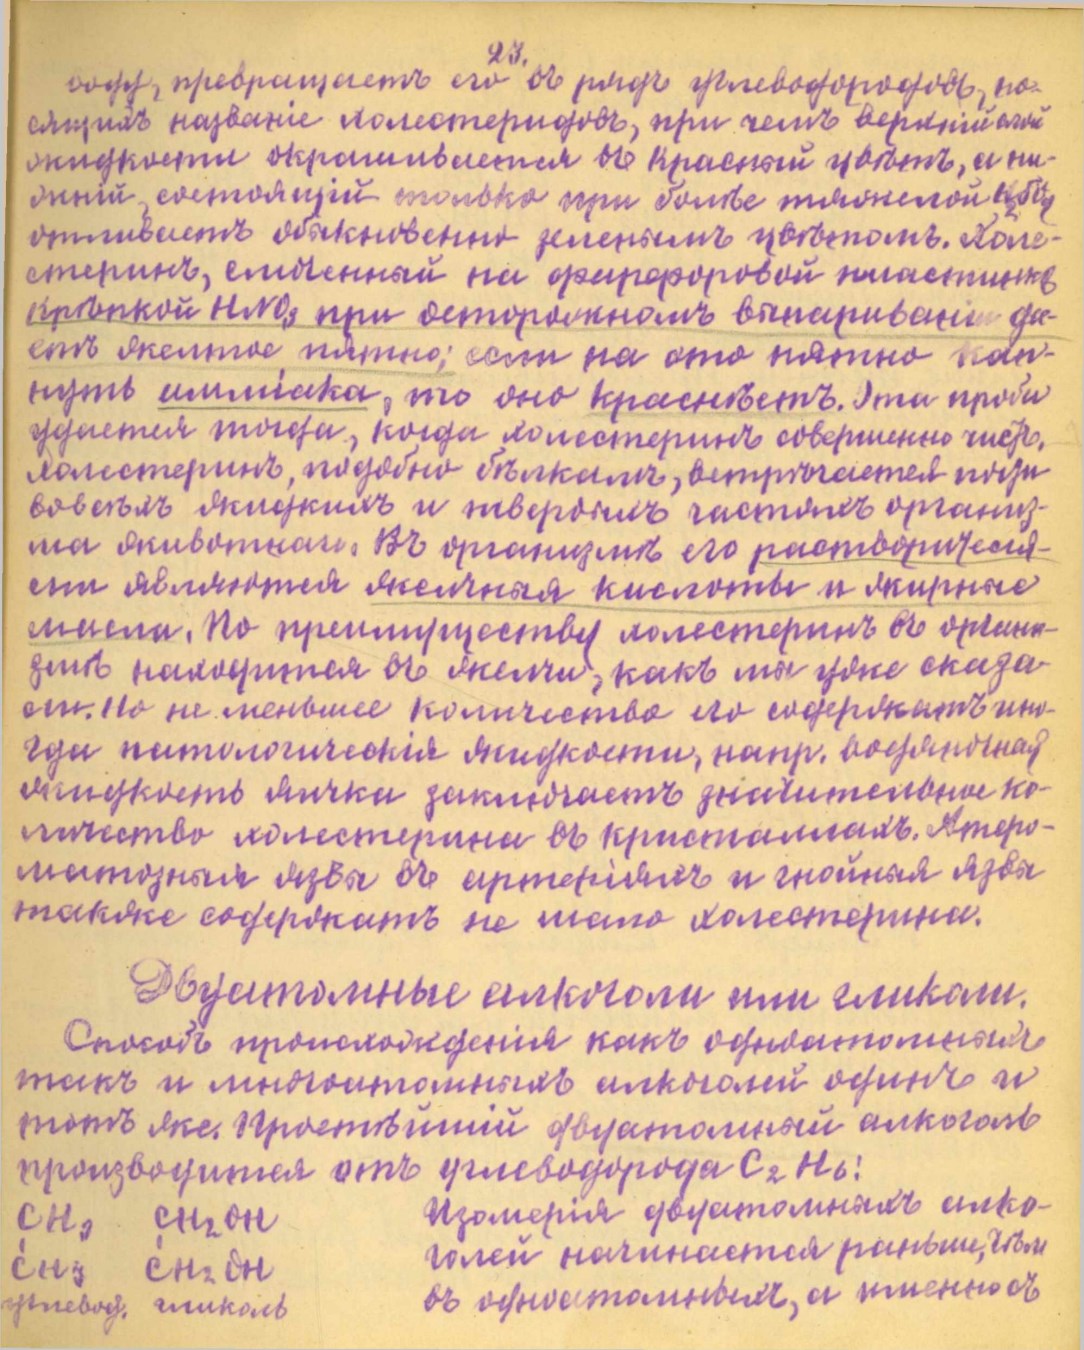 23.
воду, превращаетъ его въ рядъ углеводородовъ, но-
сящихъ названіе холестериловъ, при чемъ верхній слой
жидкости окрашивается въ красный цвѣтъ, а ни-
жній, состоящій только при болѣе тяжелой
отливаетъ обыкновенно зеленымъ цвѣтомъ. Холе-
стеринъ, смоченный на фарфоровой пластинкѣ
крѣпкой HNO3 при осторожномъ выпариваніи да-
етъ желтое пятно; если на это пятно кап-
нуть амміака, то оно краснѣетъ. Эта проба
удается тогда, когда холестеринъ совершенно чистъ.
Холестеринъ, подобно бѣлкамъ, встрѣчается почти
во всѣхъ жидкихъ и твердыхъ частяхъ организ-
ма животнаго. Въ организмѣ его растворителя-
ми являются желчныя кислоты и жирные
масла. По преимуществу холестеринъ въ орган-
измѣ находится въ желчи, какъ мы уже сказа-
ли. Но не меньшее количество его содержатъ ино-
гда патологическія жидкости, напр. водяночная
жидкость яичка заключаетъ значительное ко-
личество холестерина въ кристаллахъ. Атеро-
матозныя язвы въ артеріяхъ и гнойныя язвы
также содержатъ не мало холестерина.
Двуатомные алкоголи или гликоли.
Способъ происхожденія какъ одноатомныхъ
такъ и многоатомныхъ алкоголей одинъ и
тотъ же. Простѣйшій двуатомный алкоголь
производится отъ углеводорода C2H6:
CH3 CH2OH Изомерія двуатомныхъ алко-
CH3 CH2OH голей начинается раньше, чѣмъ
углевод. гликоль въ одноатомныхъ, а именно съ